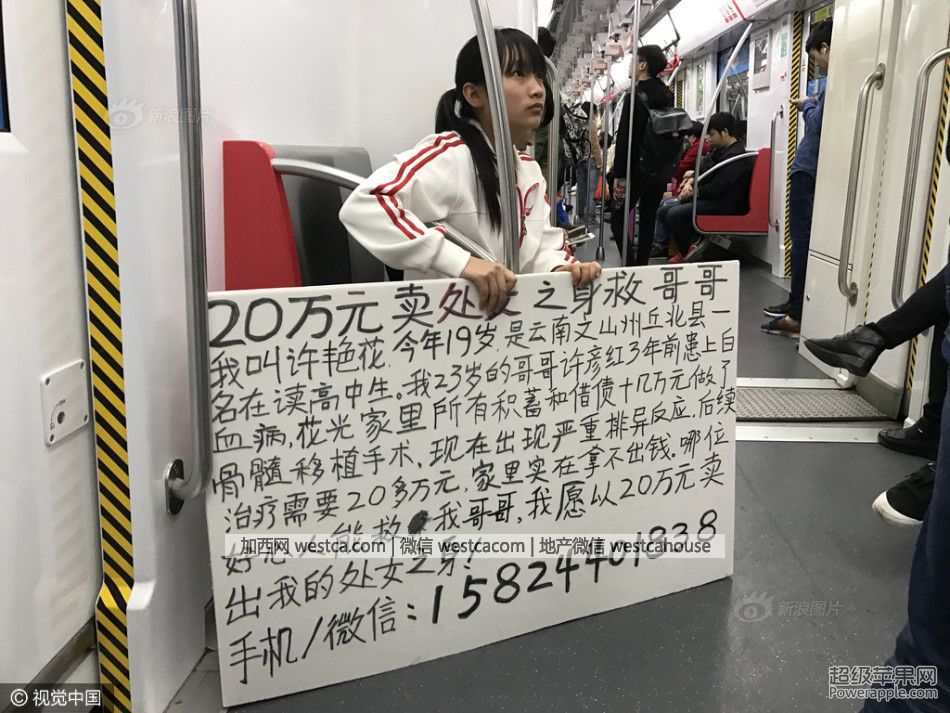 新浪图片
20万元卖处女之身救哥哥
我叫许艳花,今年19岁,是云南文山州丘北县一
名在读高中生。我23岁的哥哥许彦红3年前患上白
血病,花光家里所有积蓄和借债十几万元做了
骨髓移植手术,现在出现严重排异反应,后续
治疗需要20多万元,家里实在拿不出钱。哪位
好心人能救我哥哥,我愿以20万元卖
加西网 westca.com | 微信 westcacom | 地产微信 westcahouse
出我的处女之身!
手机/微信:15824401838
新浪图片
© 视觉中国
超级苹果网
Powerapple.com